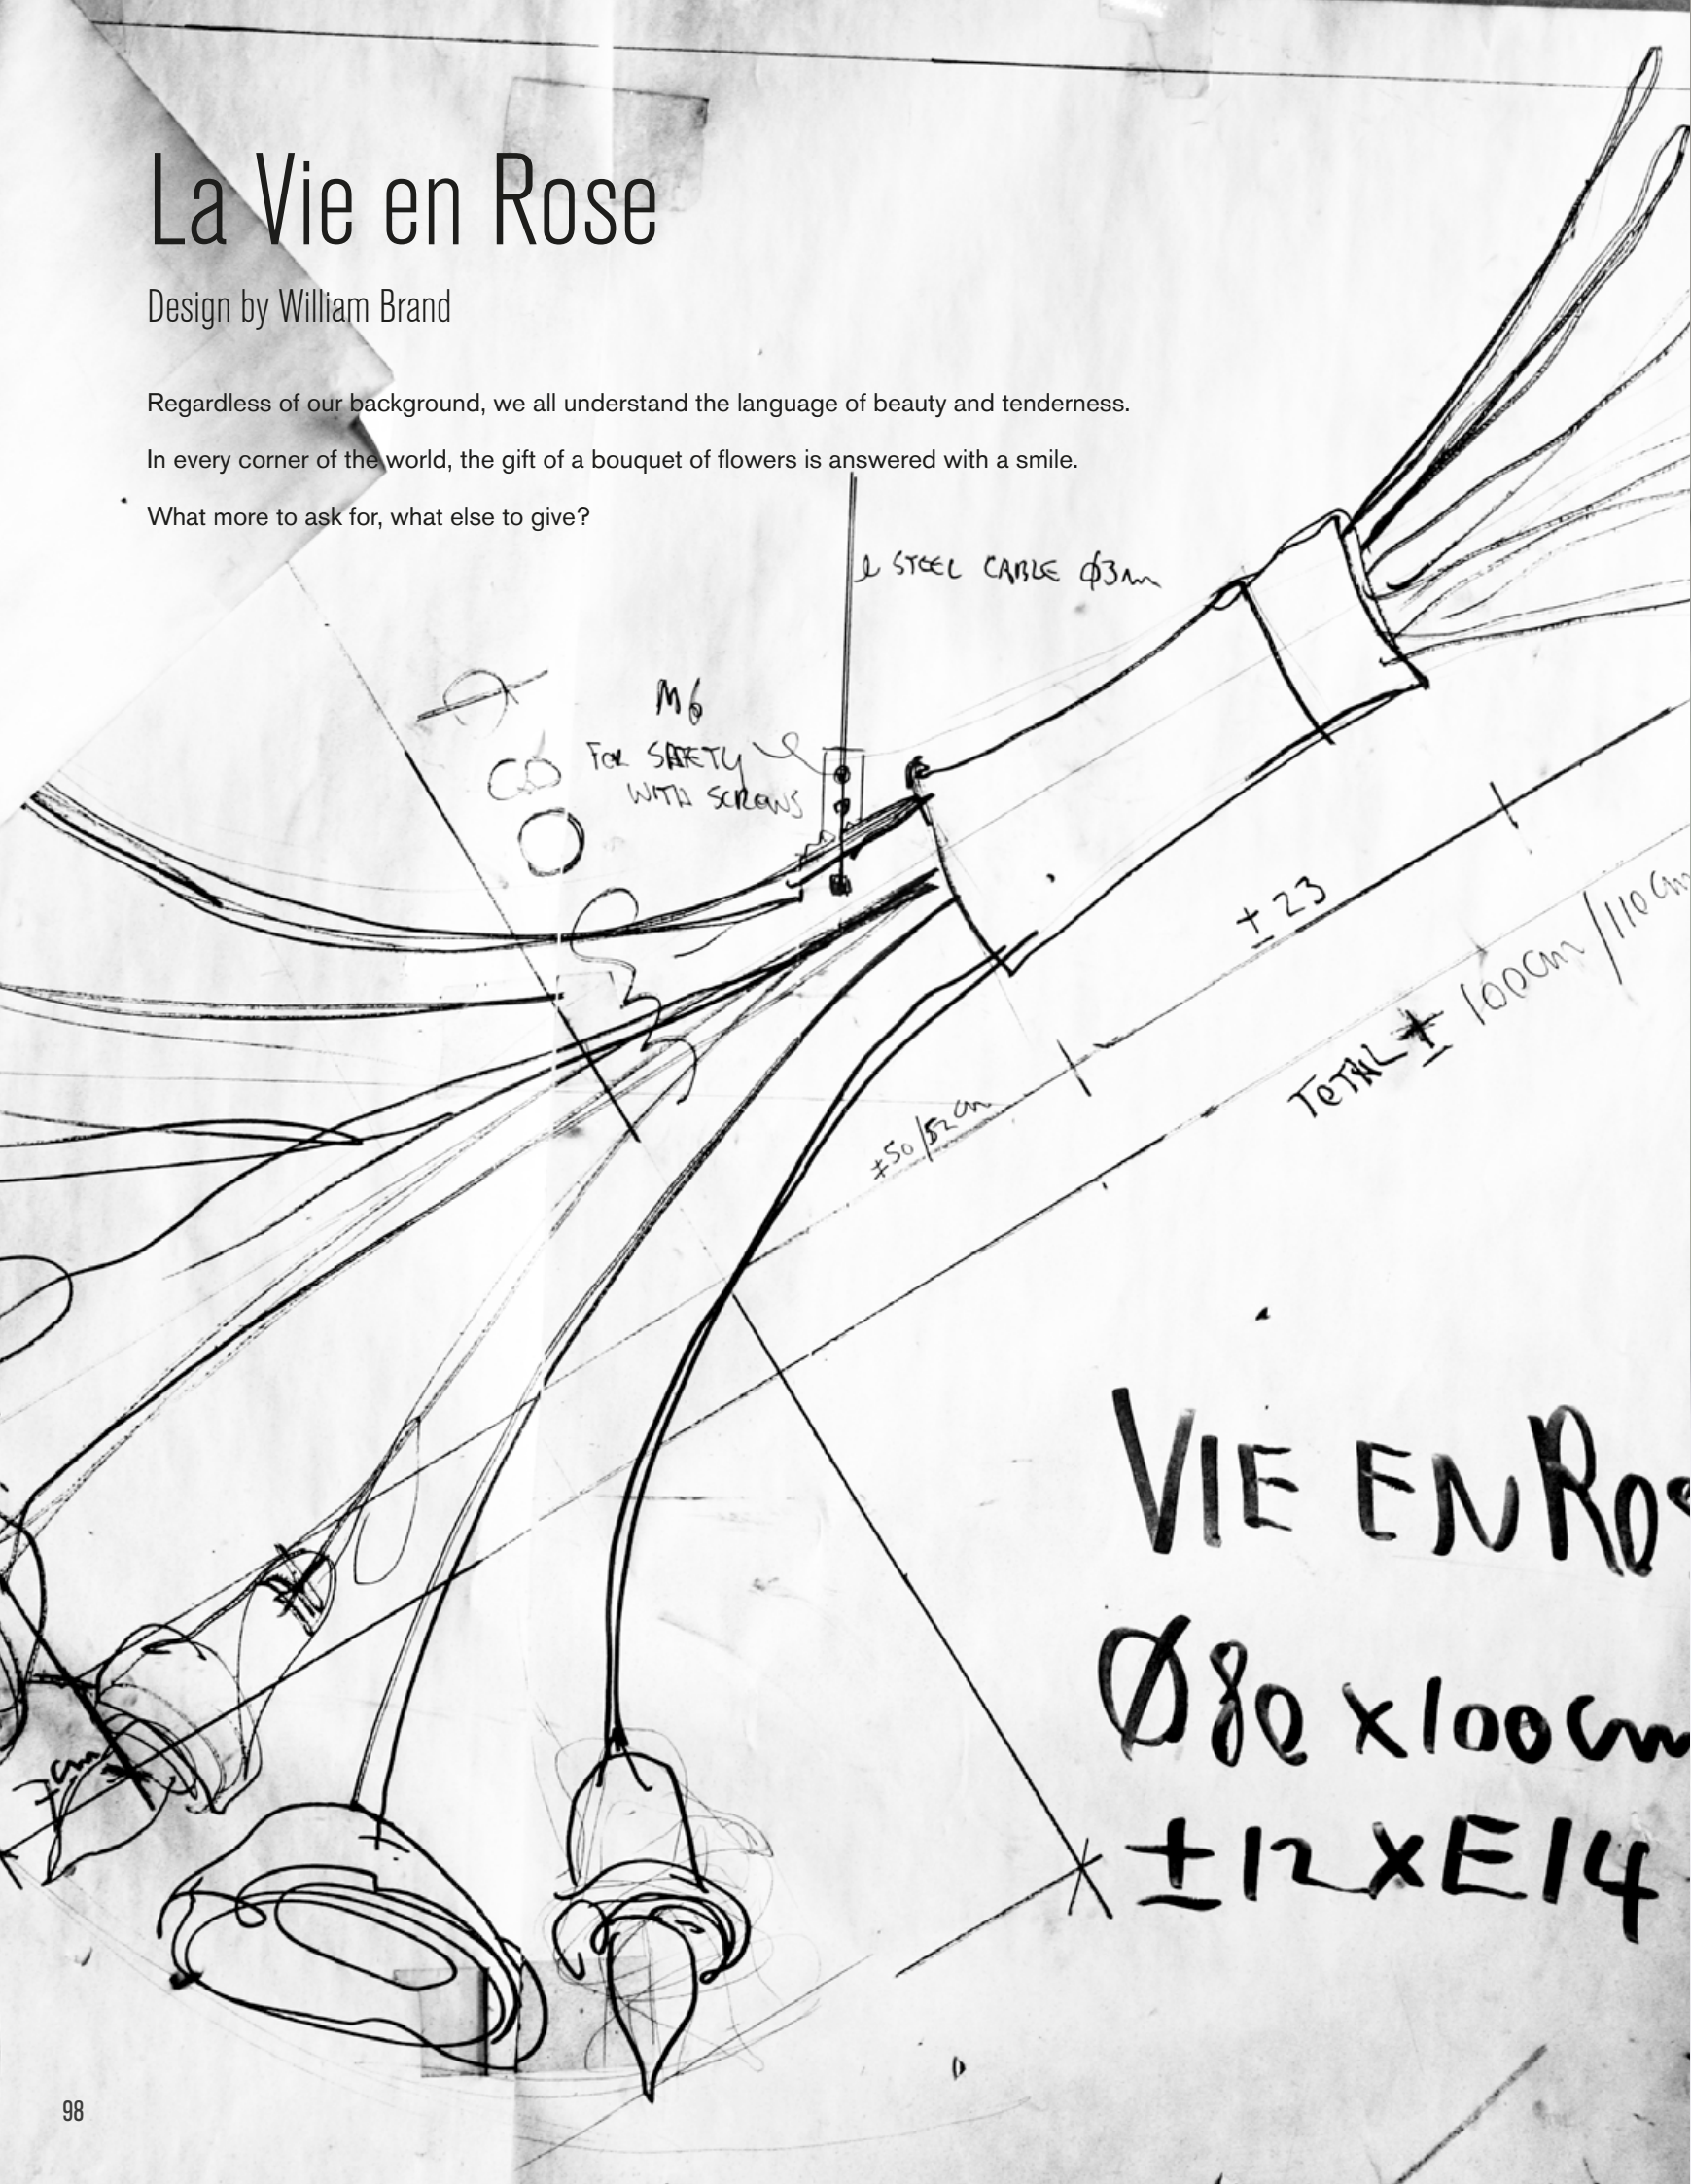 La Vie en Rose
Design by William Brand
Regardless of our background, we all understand the language of beauty and tenderness.
In every corner of the world, the gift of a bouquet of flowers is answered with a smile.
What more to ask for, what else to give?
STEEL CABLE Ø3mm
M6
FOR SAFETY
WITH SCREWS
± 23
TOTAL ± 100cm/110cm
±50/52cm
VIE EN ROS
Ø80 x100cm
±12xE14
98